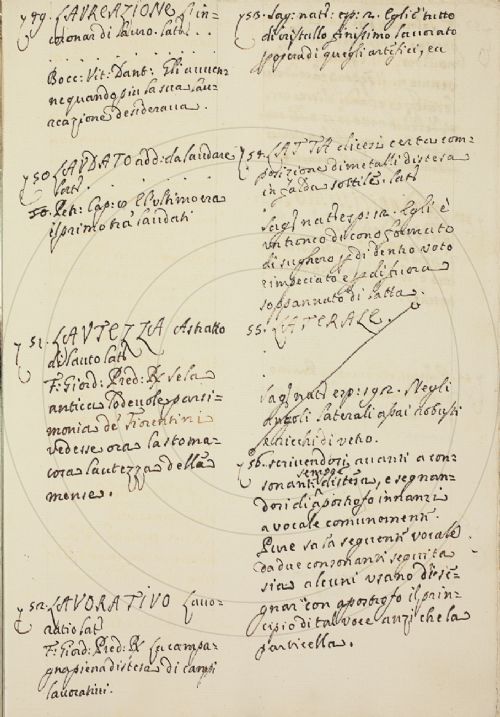 749. LAUREAZIONE l'in-
coronar di lauro. lat:
Bocc: Vit: Dant: Gli avven-
ne quando più la sua lau-
reazione desiderava.
750. LAUDATO add: da laudare
lat:
50. Petr: Cap: 10 E l'ultimo era
il primo trà laudati
751. LAUTEZZA Astratto
di lauto lat:
F: Giord: Pred: R Se la
antica lodevole parsi-
monia de' Fiorentini
vedesse ora la stoma-
cosa lautezza delle
mense.
752. LAVORATIVO Lavo-
ratio lat:
F: Giord: Pred: R La campa-
gna piena distesa di campi
lavorativi.
753. Sag: nat: esp: 2. Egli è tutto
di cristallo finissimo lavorato
per opera di quegli artefici, ec
754. LATTA dicesi certa com-
posizione di metalli distesa
in falda sottile. lat:
Sag: nat: esp: 12. Egli è
un tronco di cono formato
di sughero per di dentro voto
e impeciato e per di fuora
soppannato di latta.
55. LATERALE.
Sag: nat: esp: 192. Negli
angoli laterali assai robusti
di vetro.
756. scrivendosi avanti a con-
sonanti sempre distesa, e segnan-
dosi di apostrofo innanzi
a vocale comunementi.
Pure se la seguente vocale
da due consonanti seguita
sia alcuni usano di se-
gnar con apostrofo il prin-
cipio di tal voce anzi che la
particella.